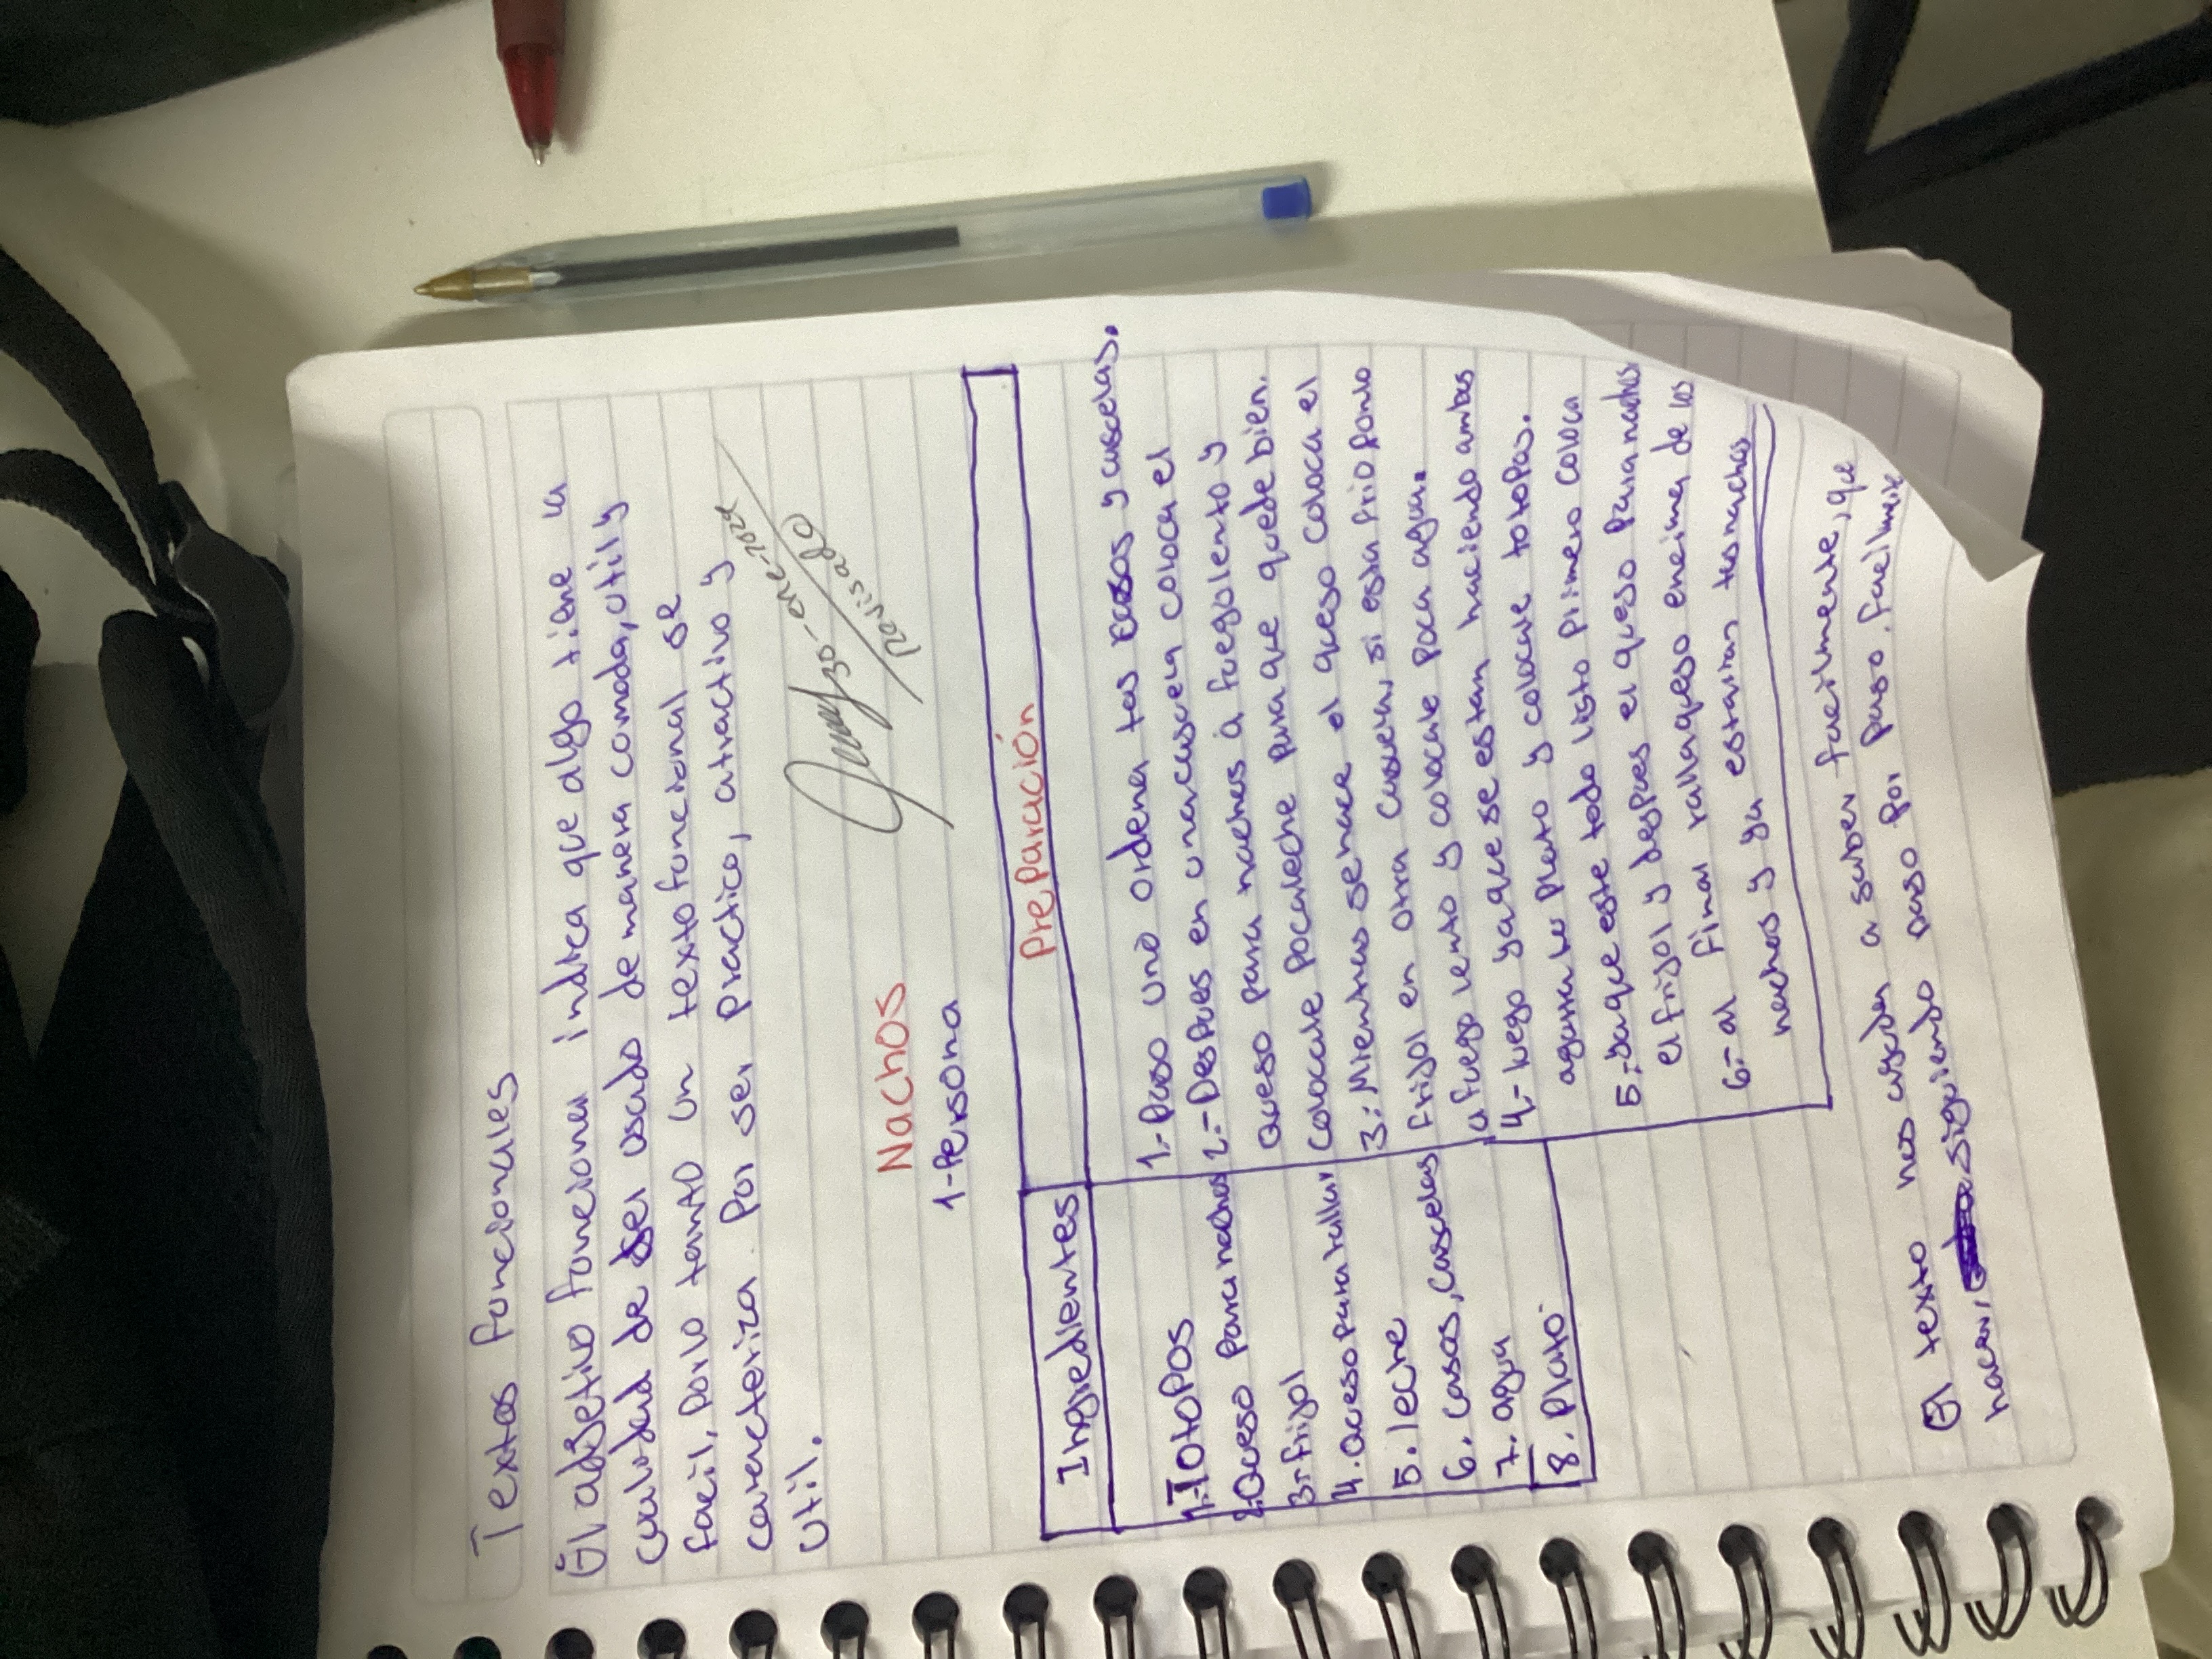 Textos funcionales
El adjetivo funcional indica que algo tiene la
cualidad de ser usado de manera comoda, util y
facil, por lo tanto un texto funcional se
caracteriza por ser practico, atractivo y
util.
30-ene-2024
Revisado
Nachos
1-Persona
Ingredientes
1.-Totopos
2.Queso para nachos
3.-frijol
4.queso para rallar
5.leche
6. casos, casuelas
7. agua
8. Plato.
Preparación
1.-Paso uno ordena tos casos y casuelas.
2.-Despues en una casuela coloca el
queso para nachos a fuego lento y
colocale poca leche para que quede bien.
3.-Mientras se hace el queso coloca el
frijol en otra casuela, si esta frio ponlo
a fuego lento y colocale poca agua.
4.-luego ya que se estan haciendo ambos
agarra tu plato y colocale totopos.
5.-ya que este todo listo primero coloca
el frijol y despues el queso para nachos
6.-al final ralla queso encima de los
nachos y ya estarian tus nachos
El texto nos ayuda a saber facilmente, que
hacer, siguiendo paso por paso. facilmente